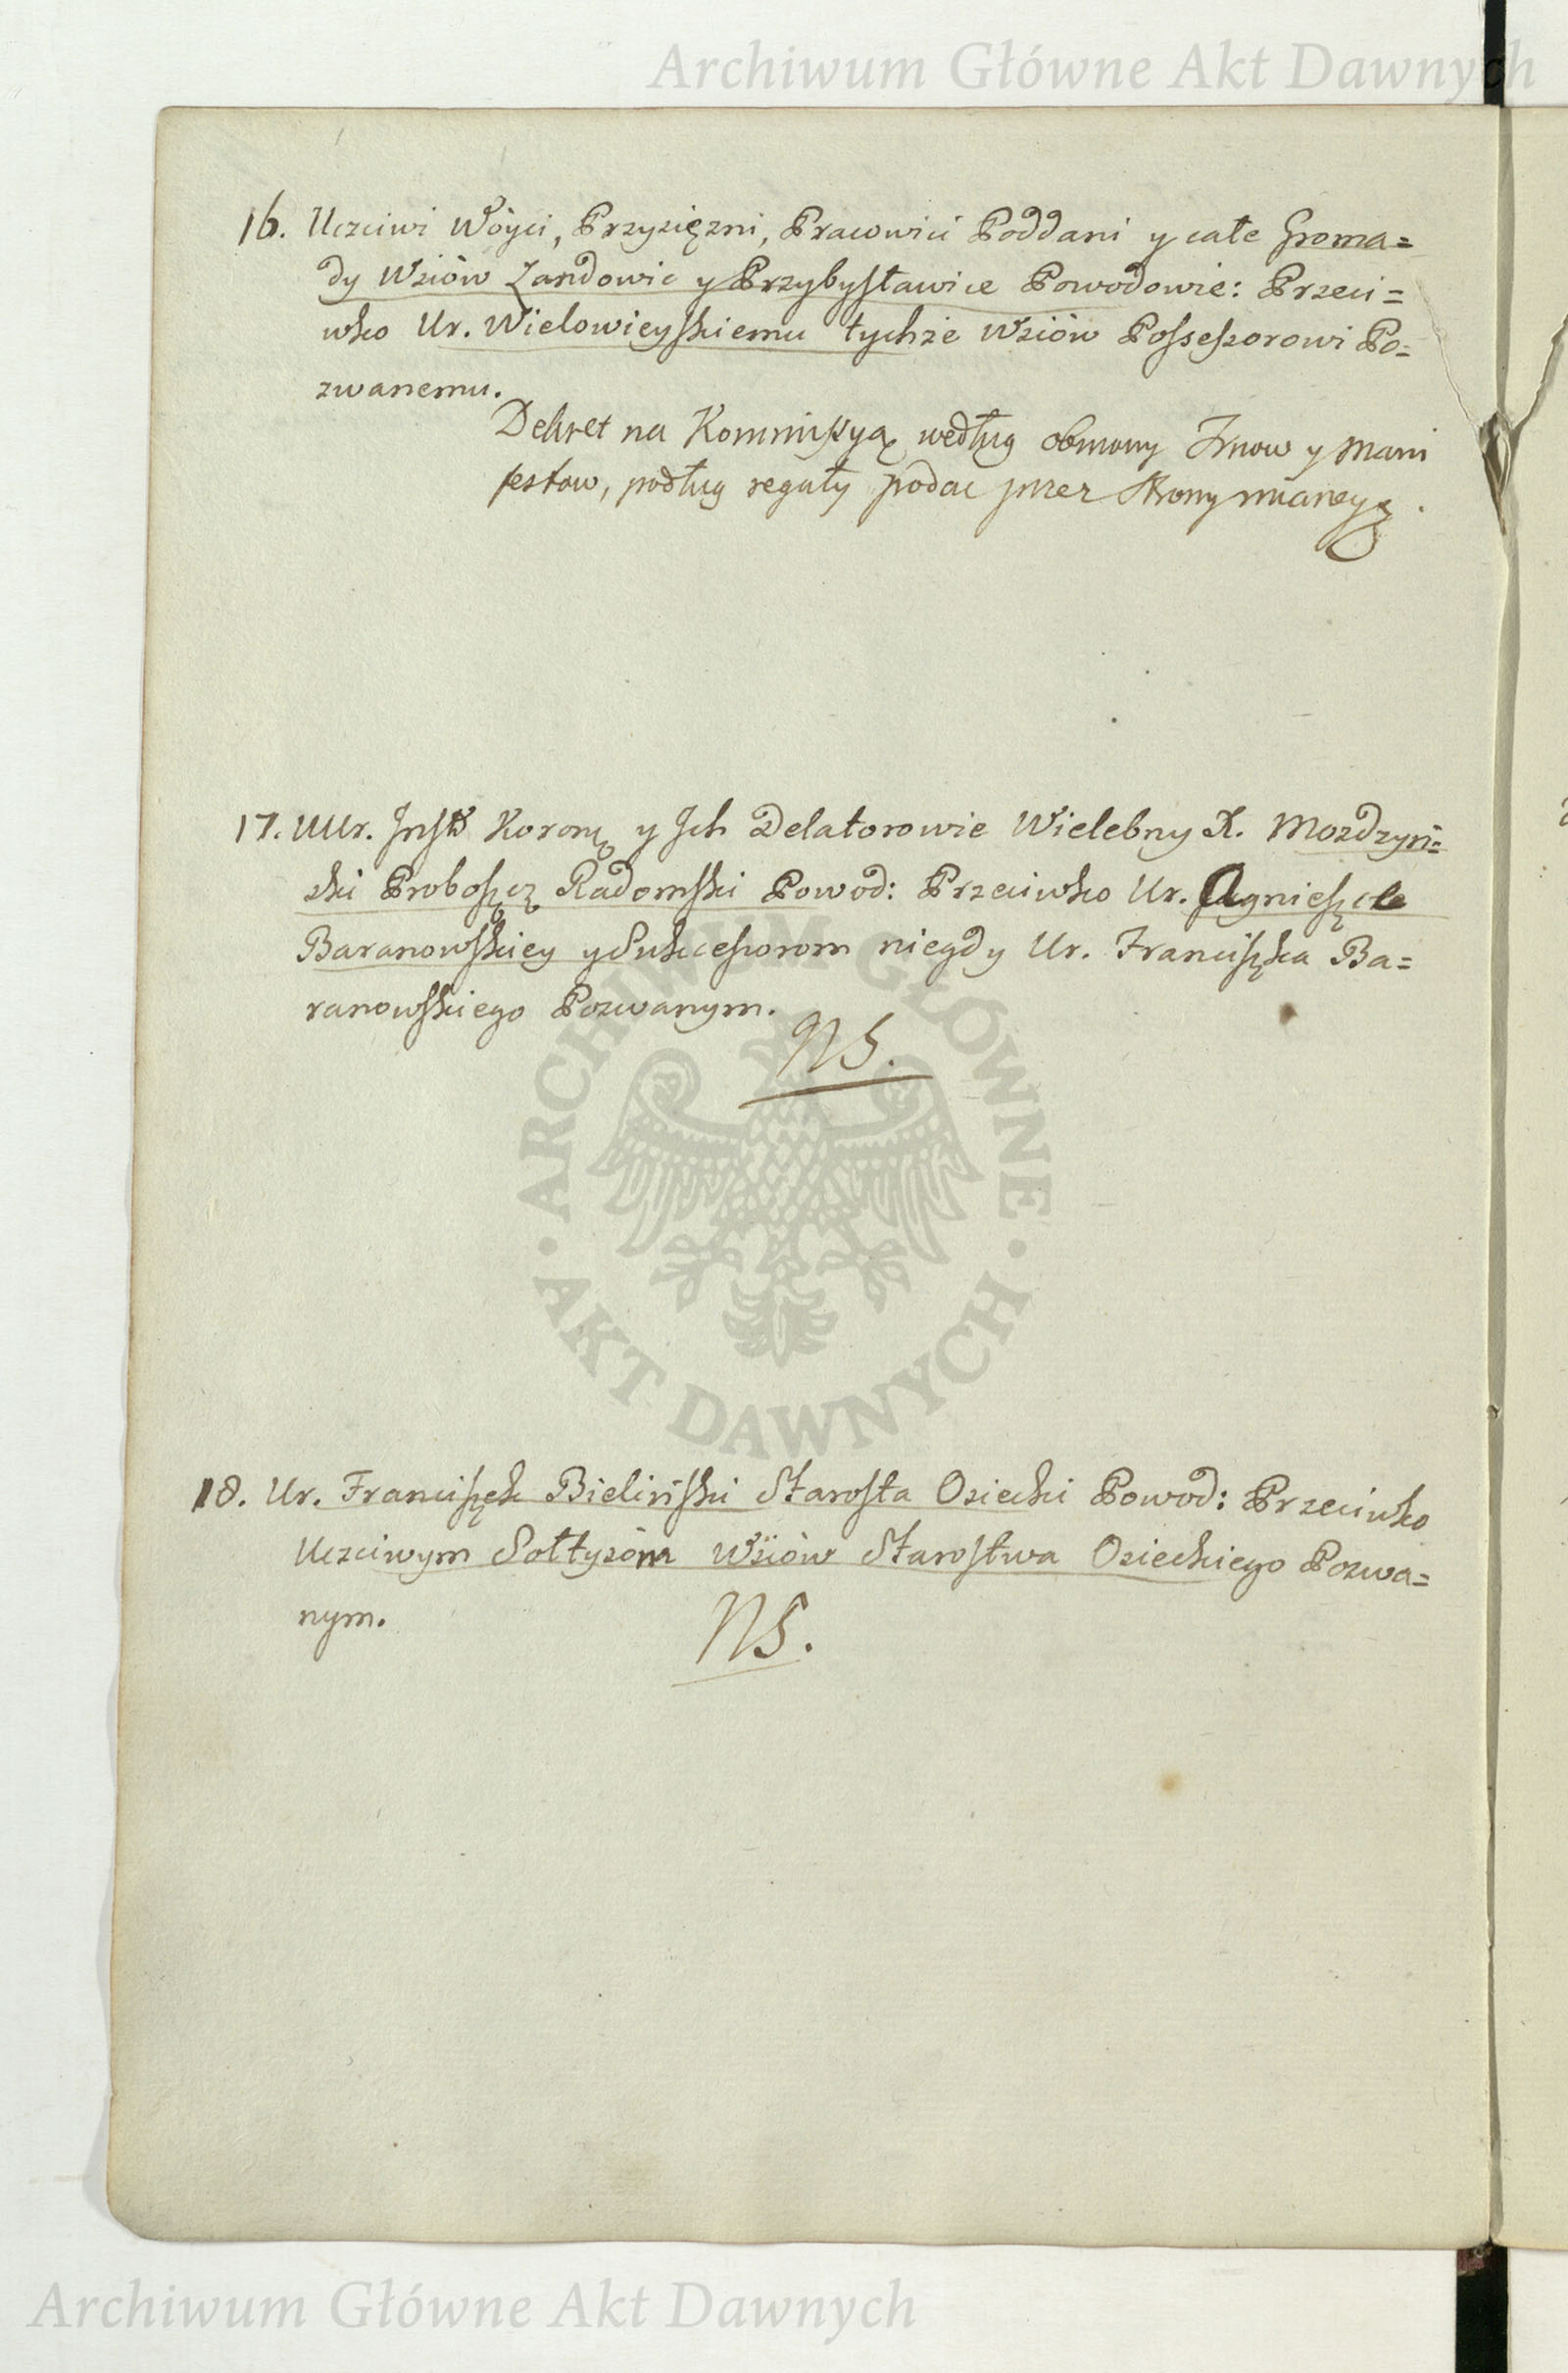 Archiwum Główne Akt Dawnych
16. Uczciwi Wóyci, Przysiężni, Pracowici Poddani y całe Groma=
dy Wsiów Zandowic y Przybysławice Powodowie: Przeci=
wko Ur. Wielowieyskiemu tychże Wsiów Possessorowi Po=
zwanemu.
Dekret na Kommissyą według obmowy y Mani
festow, podług reguły podac przez Strony mianey
17. UUr. Insti Koronę y Ich Delatorowie Wielebny X. Mozdzyń=
ski Proboszcz Radomski Powod: Przeciwko Ur. Agnieszcze
Baranowskiey y Sukcessorom niegdy Ur. Franciszka Ba=
ranowskiego Pozwanym.
NS.
ARCHIWUM GŁÓWNE · AKT DAWNYCH ·
18. Ur. Franciszek Bieliński Starosta Osiecki Powod: Przeciwko
Uczciwym Sołtysóm Wsiów Starostwa Osieckiego Pozwa=
nym.
NS.
Archiwum Główne Akt Dawnych